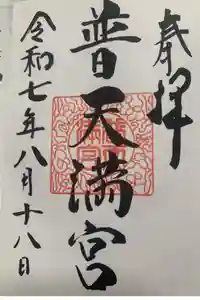 奉拝
普天満宮
令和七年八月十八日